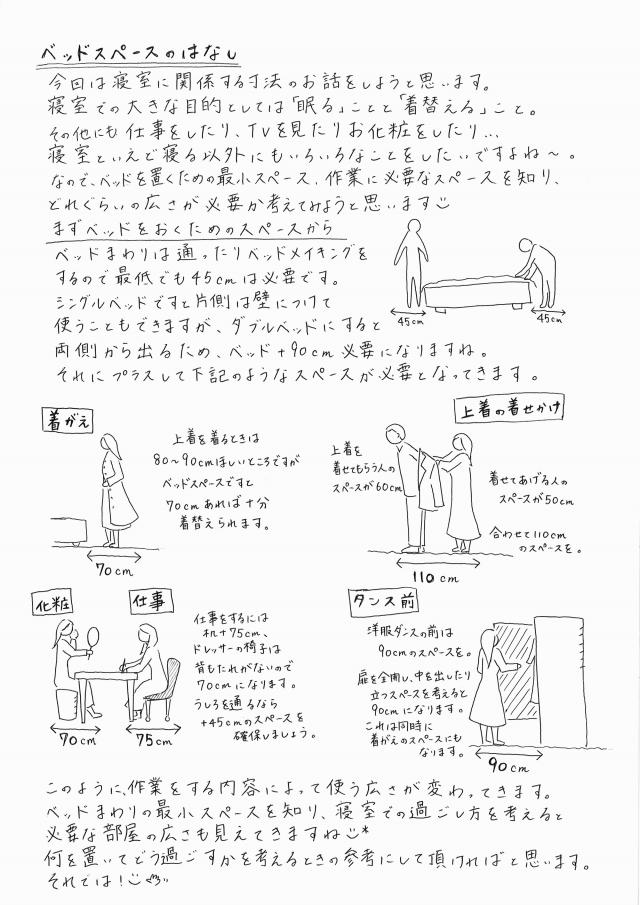 ベッドスペースのはなし
今回は寝室に関係する寸法のお話をしようと思います。
寝室での大きな目的としては「眠る」ことと「着替える」こと。
その他にも仕事をしたり、TVを見たりお化粧をしたり...
寝室といえど寝る以外にもいろいろなことをしたいですよね〜。
なので、ベッドを置くための最小スペース、作業に必要なスペースを知り、
どれぐらいの広さが必要か考えてみようと思います
まずベッドをおくためのスペースから
ベッドまわりは通ったりベッドメイキングを
するので最低でも45cmは必要です。
シングルベッドですと片側は壁につけて
使うこともできますが、ダブルベッドにすると
両側から出るため、ベッド+90cm必要になりますね。
それにプラスして下記のようなスペースが必要となってきます。
45cm
45cm
着がえ
上着を着るときは
80〜90cmほしいところですが
ベッドスペースですと
70cmあれば十分
着替えられます。
70cm
上着の着せかけ
上着を
着せてもらう人の
スペースが60cm
着せてあげる人の
スペースが50cm
合わせて110cm
のスペースを。
110cm
化粧
仕事
仕事をするには
机+75cm、
ドレッサーの椅子は
背もたれがないので
70cmになります。
うしろを通るなら
+45cmのスペースを
確保しましょう。
70cm
75cm
タンス前
洋服ダンスの前は
90cmのスペースを。
扉を全開し、中を出したり
立つスペースを考えると
90cmになります。
これは同時に
着がえのスペースにも
なります。
90cm
このように、作業をする内容によって使う広さが変わってきます。
ベッドまわりの最小スペースを知り、寝室での過ごし方を考えると
必要な部屋の広さも見えてきますね
何を置いてどう過ごすかを考えるときの参考にして頂ければと思います。
それでは!